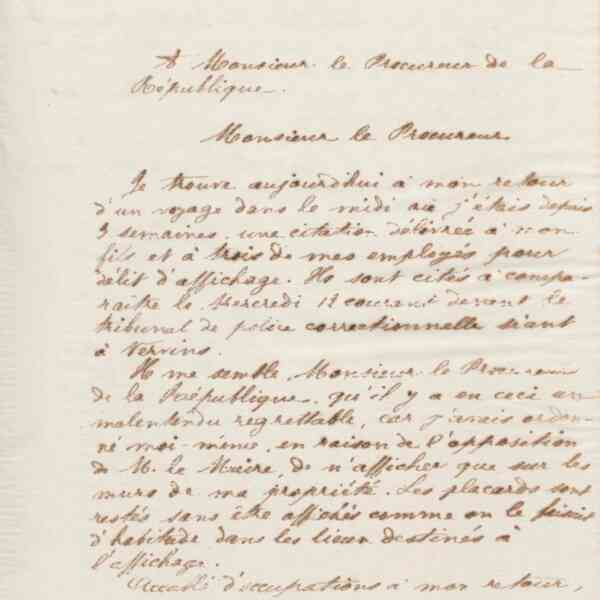 A Monsieur le Procureur de la
République.
Monsieur le Procureur
Je trouve aujourd'hui à mon retour
d'un voyage dans le midi où j'étais depuis
3 semaines, une citation délivrée à mon
fils et à trois de mes employés pour
délit d'affichage. Ils sont cités à compa-
raître le Mercredi 12 courant devant le
tribunal de police correctionnelle séant
à Vervins.
Il me semble, Monsieur le Procureur
de la République, qu'il y a eu ceci un
malentendu regrettable, car j'avais ordon-
né moi-même, en raison de l'opposition
de M. le Maire, de n'afficher que sur les
murs de ma propriété. Les placards sont
restés sans être affichés comme on le faisait
d'habitude dans les lieux destinés à
l'affichage.
Accablé d'occupations à mon retour,